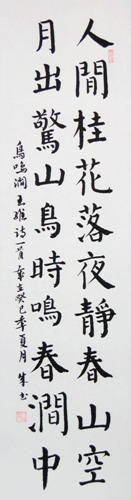 人閒桂花落夜靜春山空
月出驚山鳥時鳴春澗中
鳥鳴澗 王維诗一首 癸巳季夏月 书